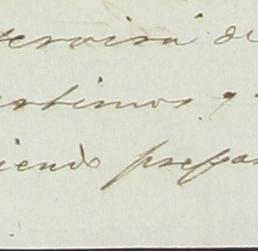 servirá de
rtimos y
iendo prepar